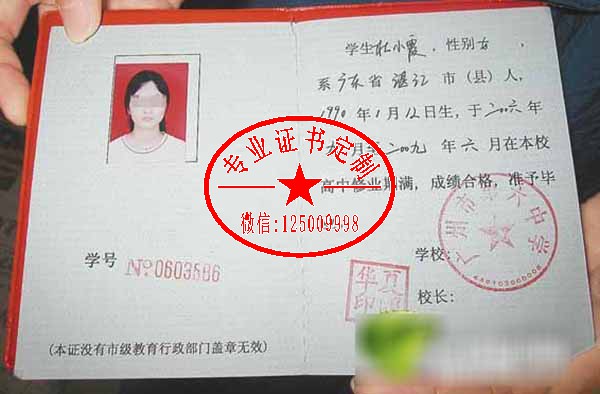 学生杜小霞，性别女，
系广东省湛江市(县)人，
1990年1月12日生，于二〇〇六年
九月至二〇〇九年六月在本校
高中修业期满，成绩合格，准予毕
学校：
校长：
学号 Nº 0603586
(本证没有市级教育行政部门盖章无效)
专业证书定制
微信:125009998
广州市 六中学
4401030000008
华夏
印